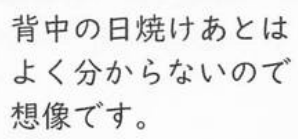 背中の日焼けあとは
よく分からないので
想像です。